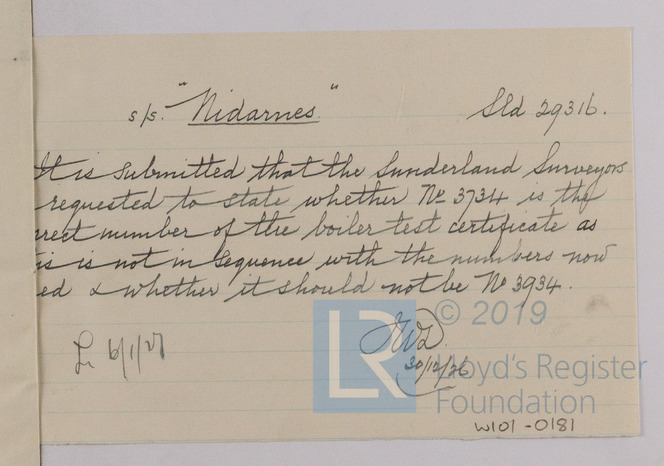 s/s. "Nidarnes." Sld 29316.
It is submitted that the Sunderland Surveyors
requested to state whether No 3734 is the
rrect number of the boiler test certificate as
is is not in sequence with the numbers now
ed & whether it should not be No 3934.
6/1/27
30/12/26
LR
© 2019
Lloyd's Register
Foundation
W101-0181